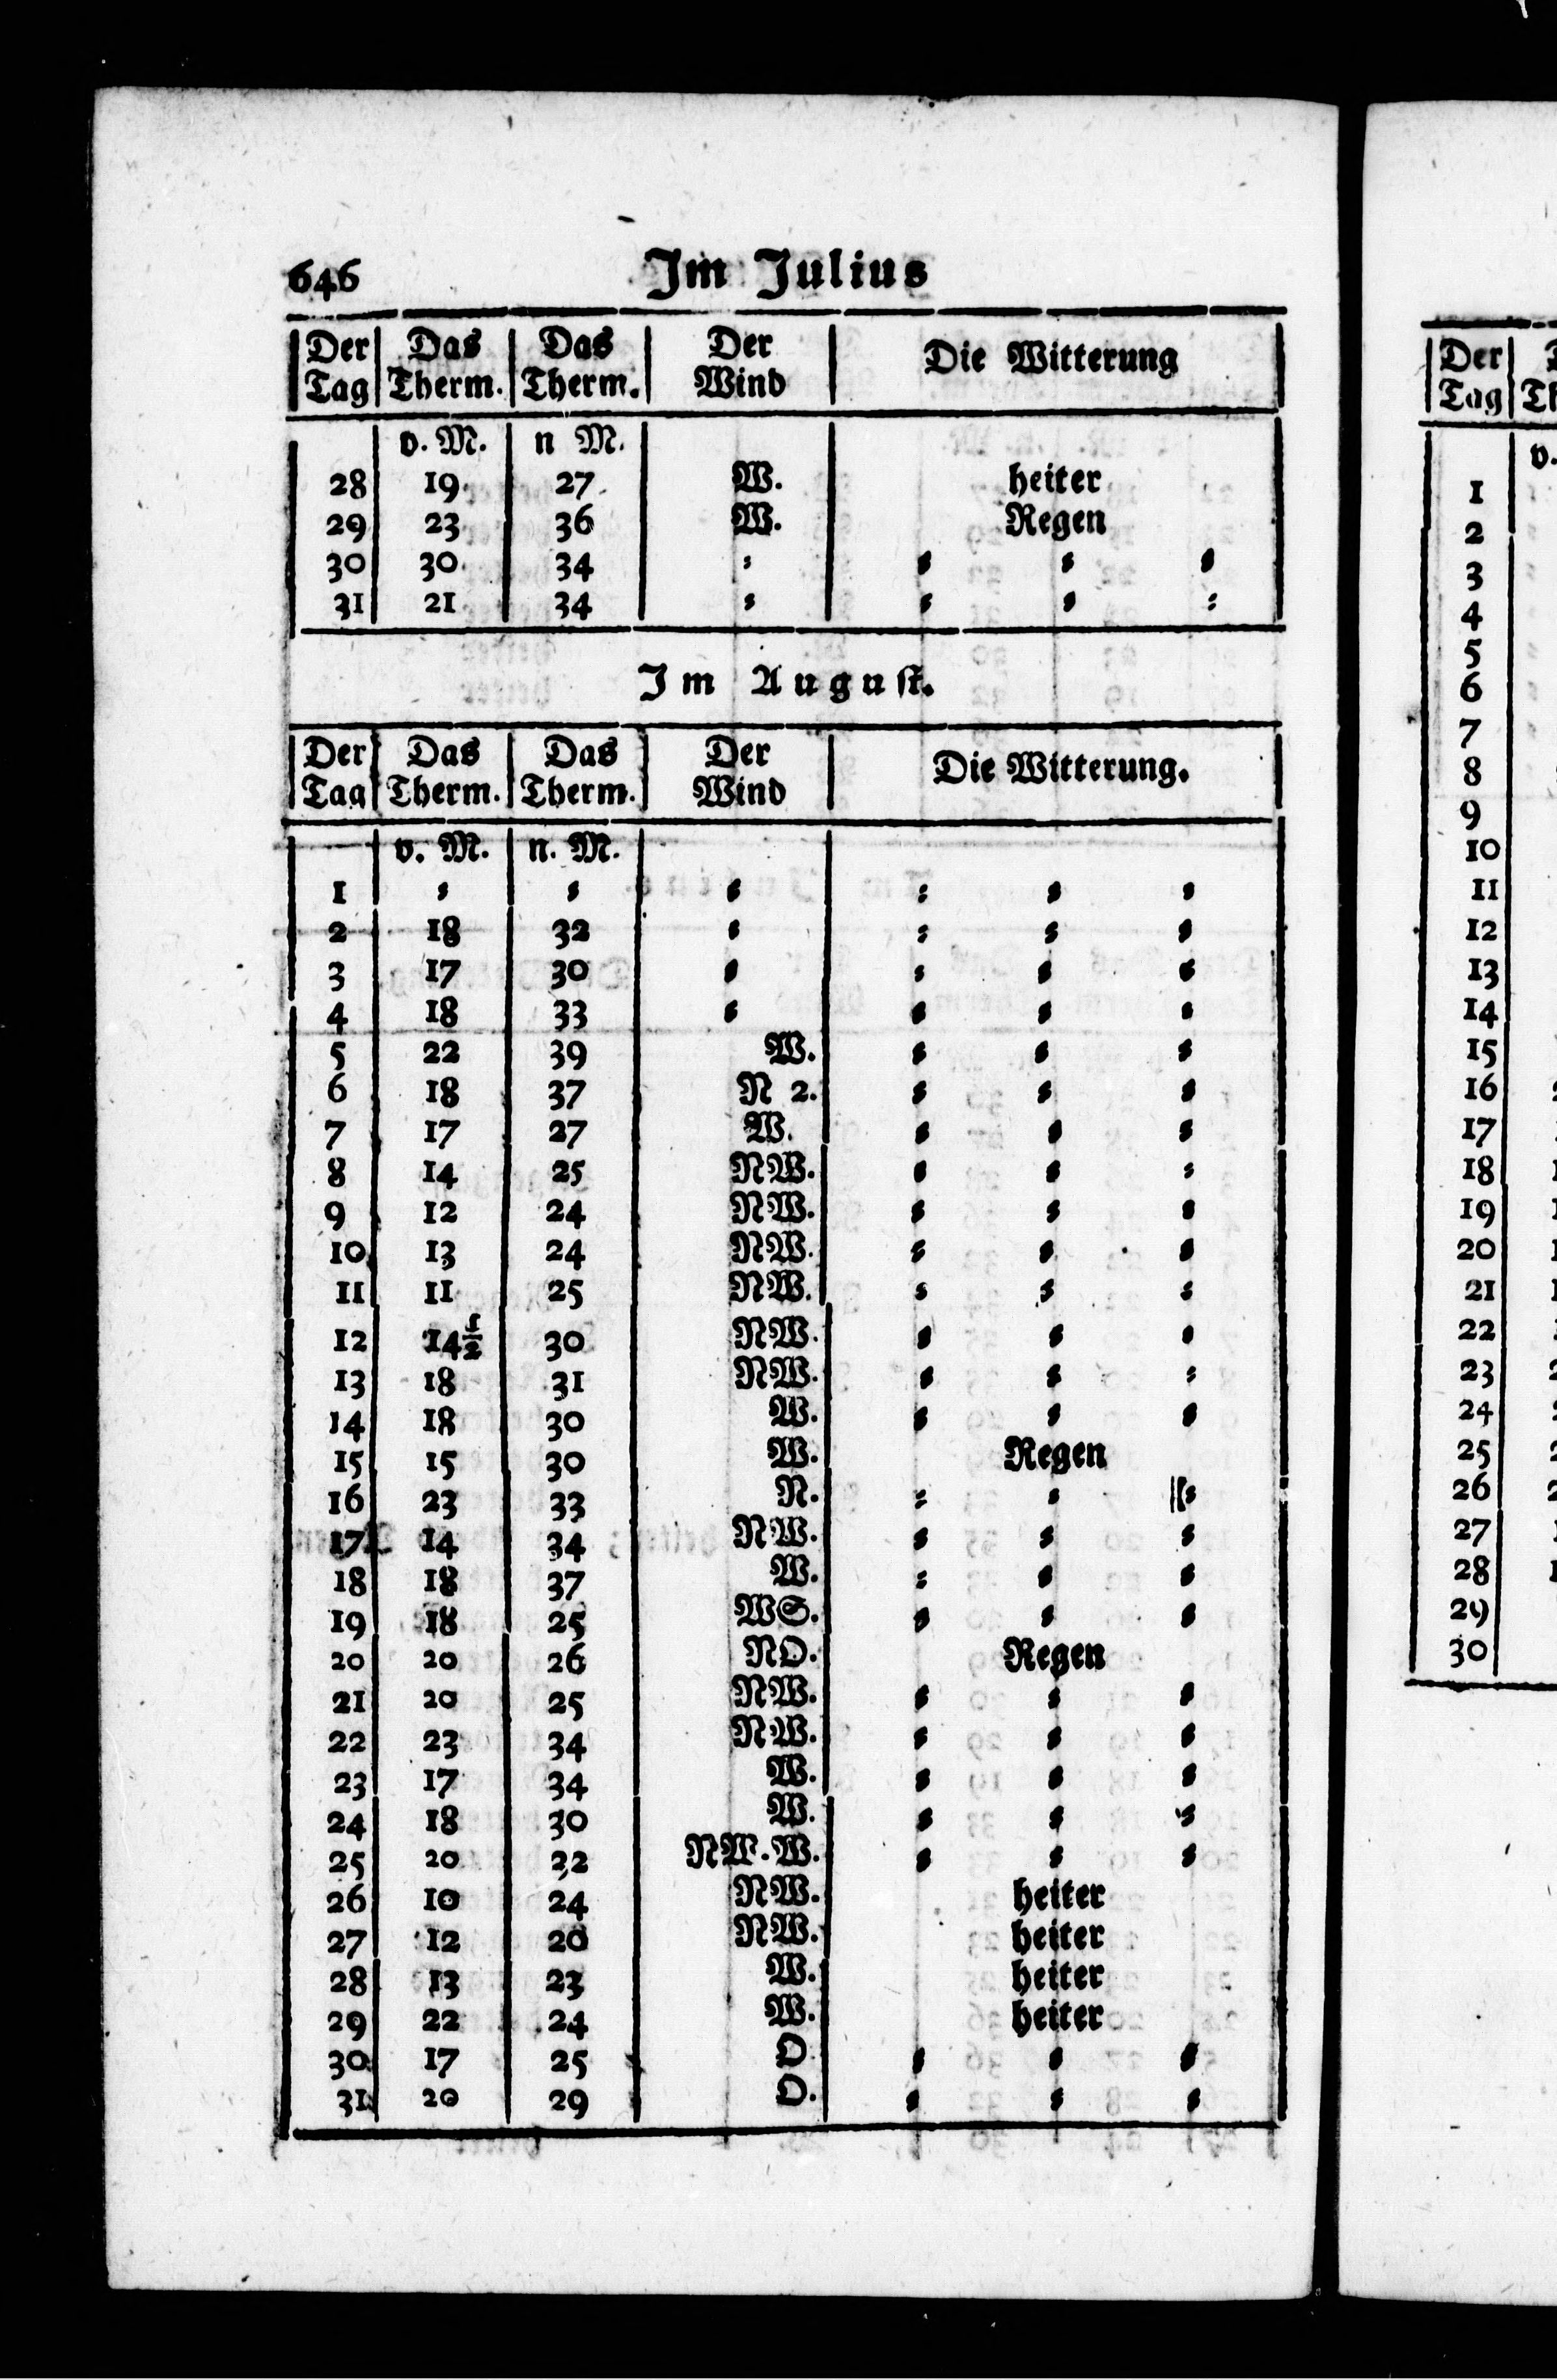 646 Im Julius
Der Das Das Der Die Witterung
Tag Therm. Therm. Wind
v. M. n M.
28 19 27 W. heiter
29 23 36 W. Regen
30 30 34 = = = =
31 21 34 = = = =
Im August.
Der Das Das Der Die Witterung.
Tag Therm. Therm. Wind
v. M. n. M.
1 = = = = = =
2 18 32 = = = =
3 17 30 = = = =
4 18 33 = = = =
5 22 39 W. = = =
6 18 37 N 2. = = =
7 17 27 W. = = =
8 14 25 NW. = = =
9 12 24 NW. = = =
10 13 24 NW. = = =
11 11 25 NW. = = =
12 14½ 30 NW. = = =
13 18 31 NW. = = =
14 18 30 W. = = =
15 15 30 W. Regen
16 23 33 N. = = =
17 14 34 NW. = = =
18 18 37 W. = = =
19 18 25 WS. = = =
20 20 26 NO. Regen
21 20 25 NW. = = =
22 23 34 NW. = = =
23 17 34 W. = = =
24 18 30 W. = = =
25 20 32 NW.W. = = =
26 10 24 NW. heiter
27 12 20 NW. heiter
28 13 23 W. heiter
29 22 24 W. heiter
30 17 25 O = = =
31 20 29 O. = = =
Der
Tag
v.
1
2
3
4
5
6
7
8
9
10
11
12
13
14
15
16
17
18
19
20
21
22
23
24
25
26
27
28
29
30